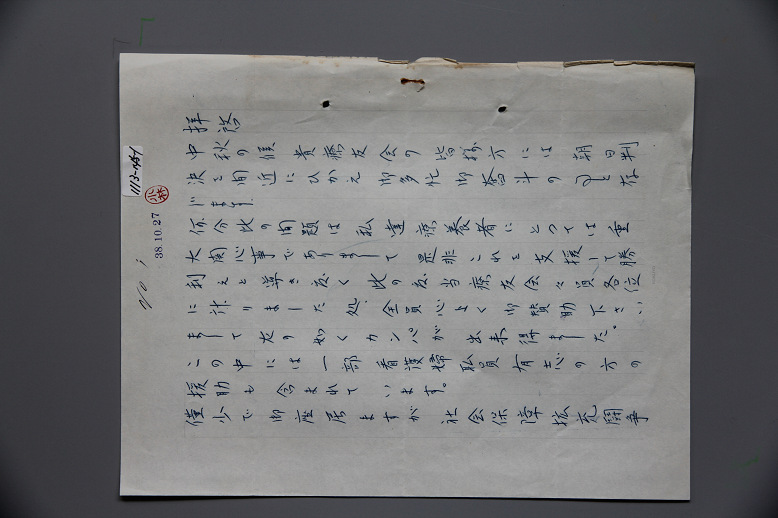 1113-45-1
小林
38.10.27
No 1
拝啓
中秋の候 貴療友会の皆様方には 朝日判
決を間近にひかえ 御多忙 御奮斗の事と存
じます。
何分此の問題は 私達療養者にとっては重
大関心事でありまして 是非これを支援して勝
利えと導き度く 此の度当療友会々員各位
に計りました処 全員心よく御賛助下さい
まして 次の如くカンパが出来得ました。
この中には一部看護婦職員有志の方の
援助も含まれています。
僅少で御座居ますが 社会保障拡充闘争